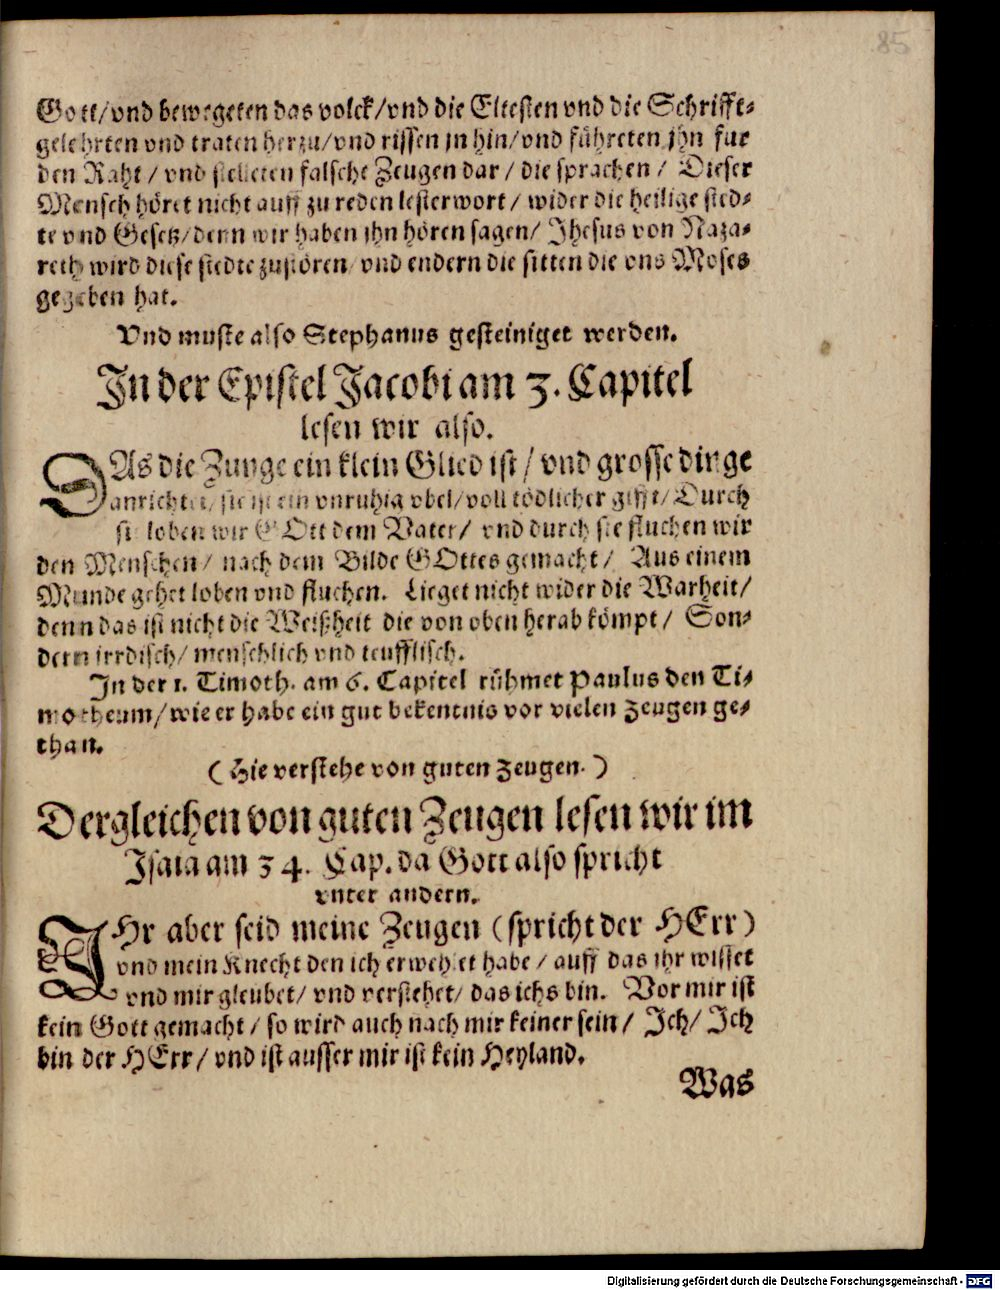 85
Gott/vnd bewegeten das volck/vnd die Eltesten vnd die Schrifft⸗
gelehrten vnd traten herzu/vnd rissen jn hin/vnd führeten jhn fur
den Raht / vnd stelleten falsche Zeugen dar / die sprachen / Dieser
Mensch höret nicht auff zu reden lesterwort / wider die heilige sted⸗
te vnd Gesetz/denn wir haben jhn hören sagen/ Jhesus von Naza⸗
reth wird diese stedte zustören/ vnd endern die sitten die vns Moses
gegeben hat.
Vnd muste also Stephanus gesteiniget werden.
In der Epistel Jacobi am 3. Capitel
lesen wir also.
DAs die Zunge ein klein Glied ist / vnd grosse dinge
anrichtet/ sie ist ein vnruhig vbel/voll tödlicher gifft/ Durch
sie loben wir GOtt dem Vater/ vnd durch sie fluchen wir
den Menschen / nach dem Bilde GOttes gemacht / Aus einem
Munde gehet loben vnd fluchen. Lieget nicht wider die Warheit/
denn das ist nicht die Weißheit die von oben herab kömpt / Son⸗
dern jrrdisch/ menschlich vnd teufflisch.
In der 1. Timoth. am 6. Capitel rühmet Paulus den Ti⸗
motheum/wie er habe ein gut bekentnis vor vielen zeugen ge⸗
than.
( Hie verstehe von guten zeugen. )
Dergleichen von guten Zeugen lesen wir im
Isaia am 34. Cap. da Gott also spricht
vnter andern.
IHr aber seid meine Zeugen (spricht der HErr)
vnd mein Knecht den ich erwehlet habe / auff das ihr wisset
vnd mir gleubet/ vnd verstehet/ das ichs bin. Vor mir ist
kein Gott gemacht / so wird auch nach mir keiner sein / Ich/ Ich
bin der HErr/ vnd ist ausser mir ist kein Heyland.
Was
Digitalisierung gefördert durch die Deutsche Forschungsgemeinschaft - DFG